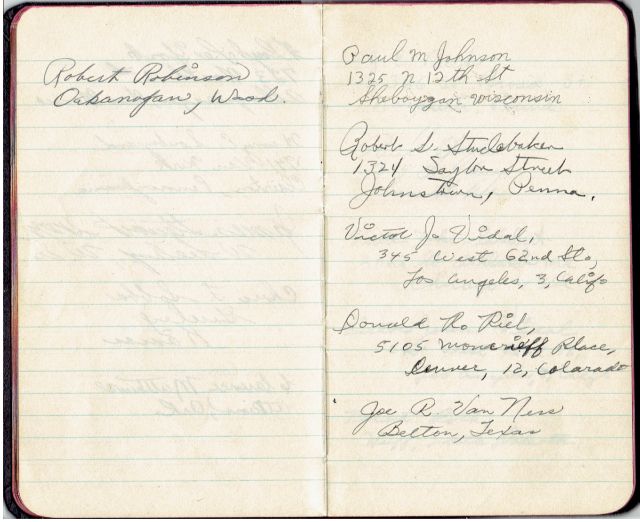 Robert Robinson
Oakanogan, Wash.
Paul M Johnson
1325 N 12th St
Sheboygan Wisconsin
Robert S. Studebaker
1324 Saylor Street
Johnstown, Penna.
Victor J. Vidal,
345 West 62nd St.,
Los Angeles, 3, Calif.
Donald R. Riel,
5105 Moncrieff Place,
Denver, 12, Colorado
Joe R. Van Ness
Belton, Texas